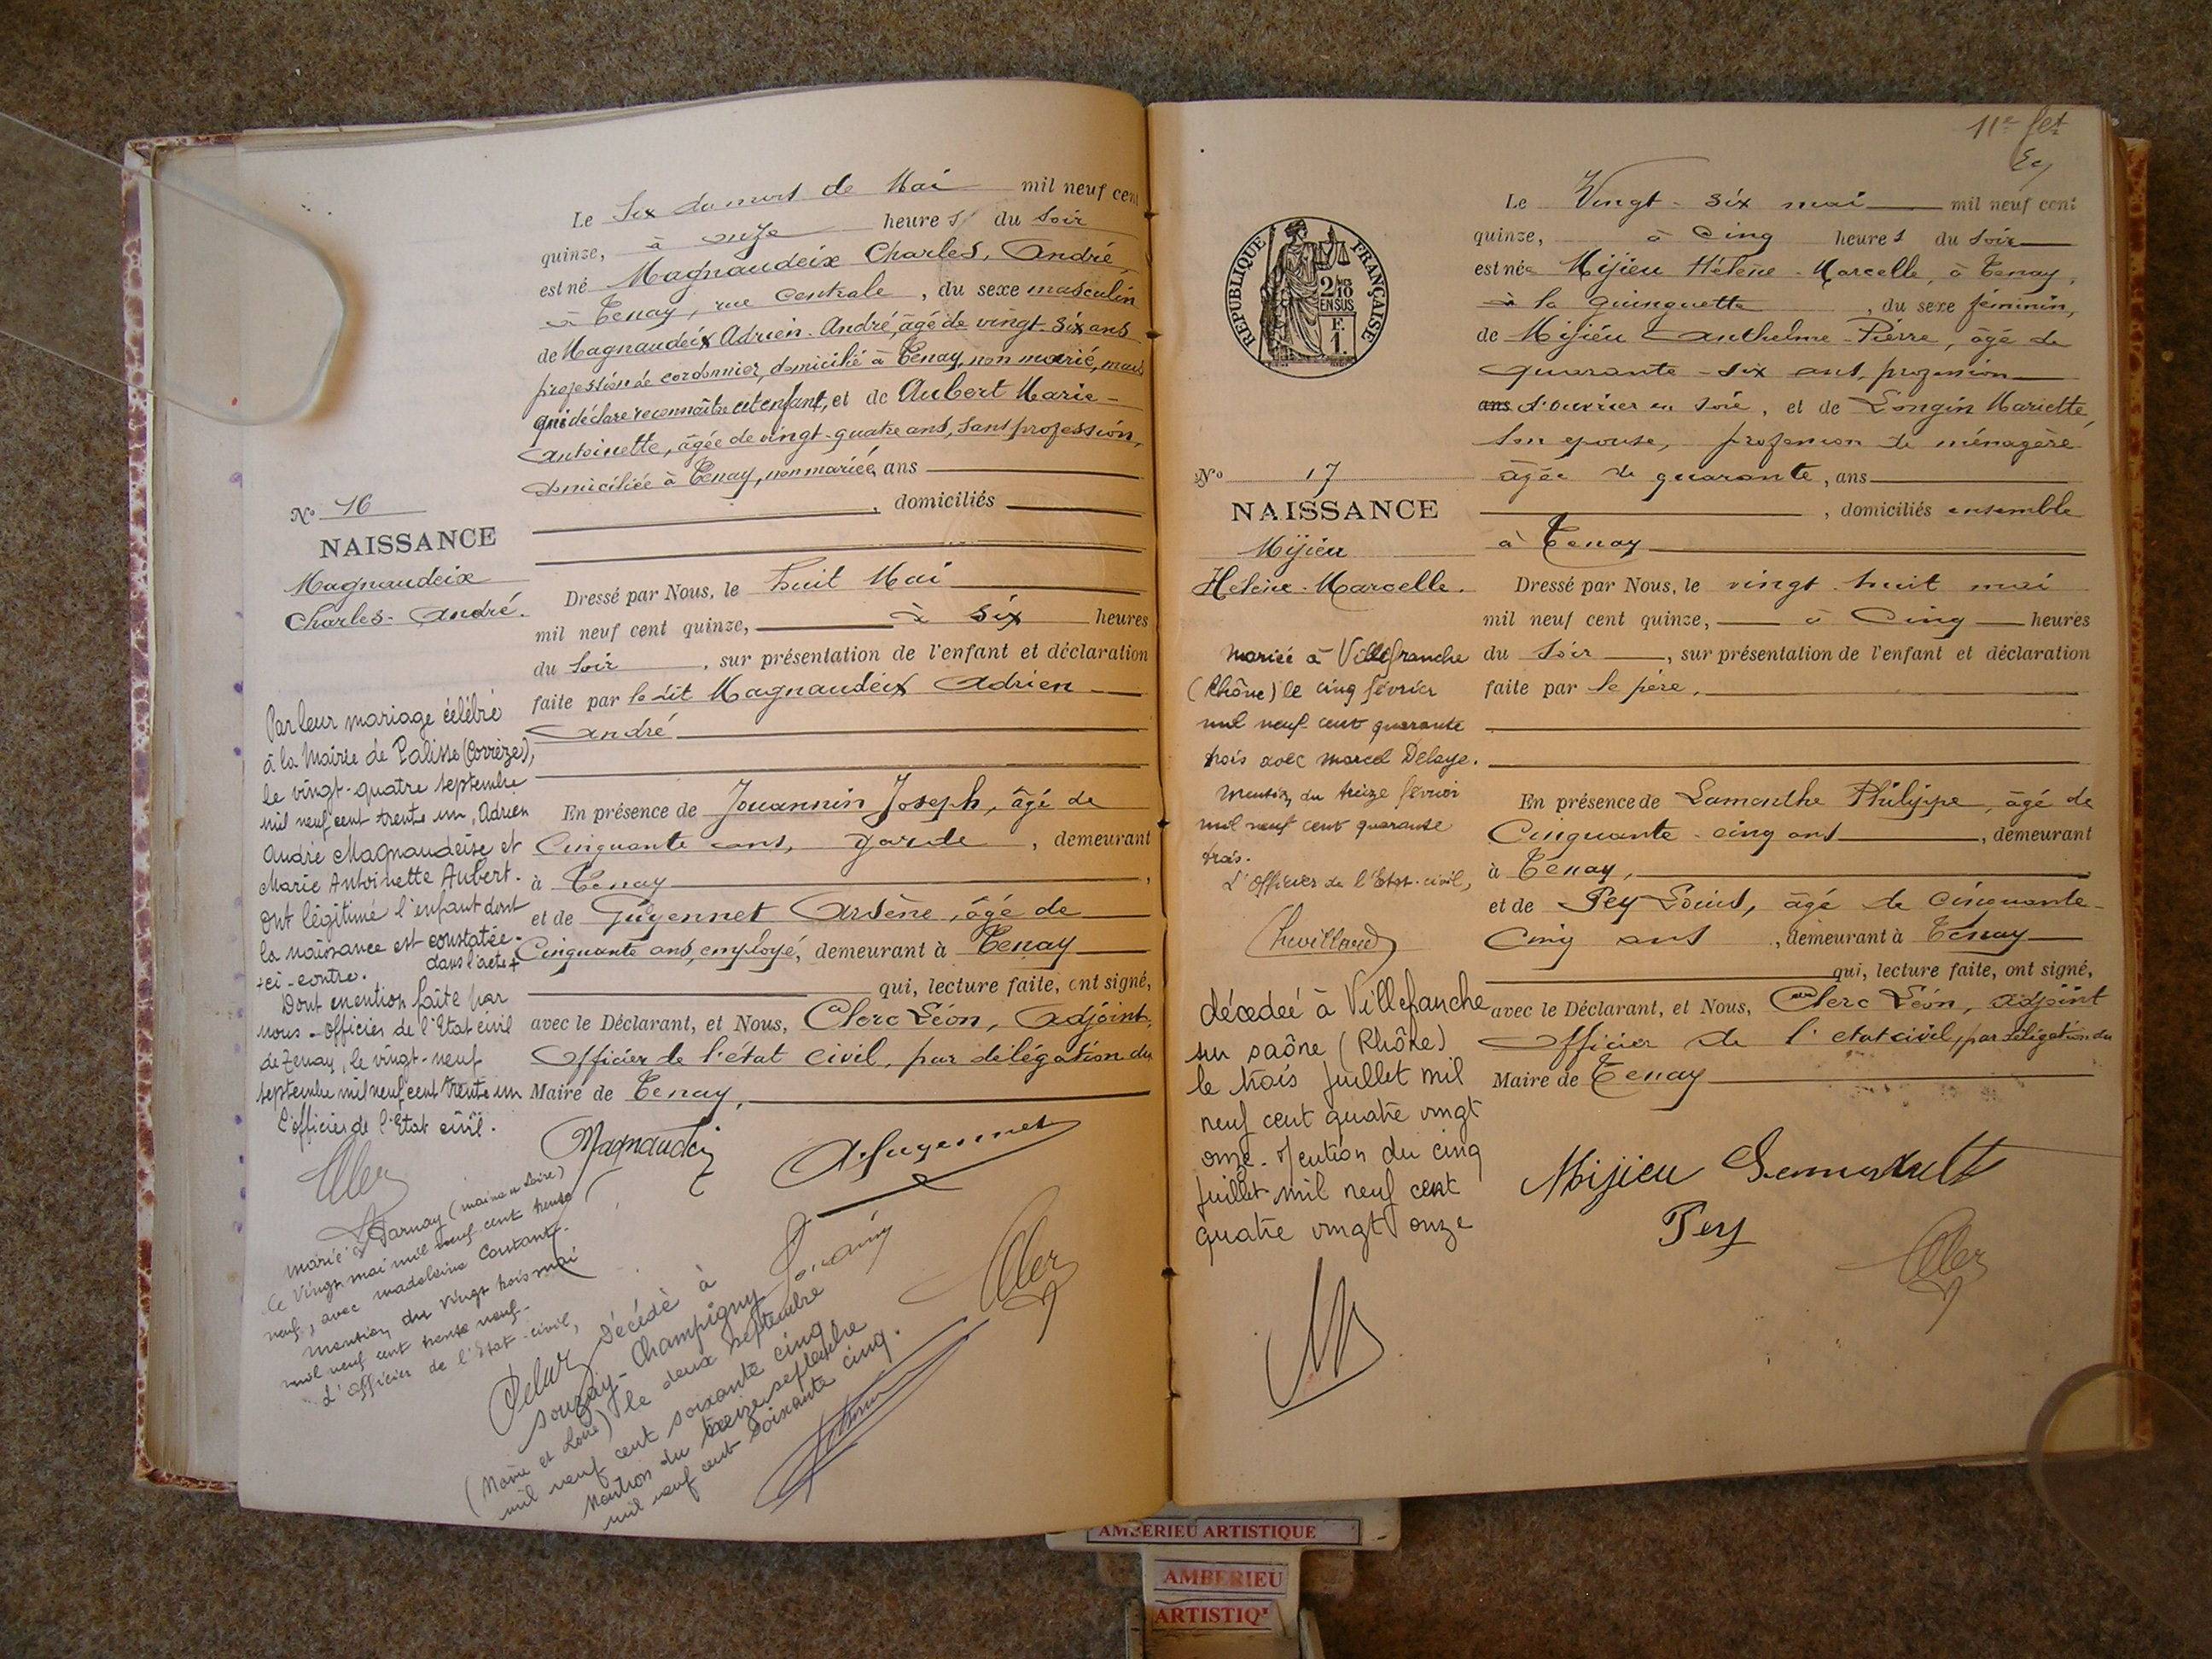 Le Six du mois de Mai mil neuf cent
quinze, à onze heures du soir
est né Magnaudeix Charles, André,
à Tenay, rue Centrale, du sexe masculin
de Magnaudeix Adrien-André, âgé de vingt-six ans
profession de cordonnier, domicilié à Tenay, non marié, mais
qui déclare reconnaître cet enfant, et de Aubert Marie-
Antoinette, âgée de vingt-quatre ans, sans profession,
domiciliée à Tenay, non mariée, ans
, domiciliés
N° 16
NAISSANCE
Magnaudeix
Charles-André.
Dressé par Nous, le huit Mai
mil neuf cent quinze, à six heures
du soir, sur présentation de l'enfant et déclaration
faite par le dit Magnaudeix Adrien
André
En présence de Jouannin Joseph, âgé de
Cinquante ans, garde, demeurant
à Tenay,
et de Guyennet Arsène, âgé de
Cinquante ans, employé, demeurant à Tenay
qui, lecture faite, ont signé,
avec le Déclarant, et Nous, Clerc Léon, Adjoint,
Officier de l'état civil, par délégation du
Maire de Tenay,
Par leur mariage célébré
à la Mairie de Palisse (Corrèze),
le vingt-quatre septembre
mil neuf cent trente un, Adrien
André Magnaudeix et
Marie Antoinette Aubert.
ont légitimé l'enfant dont
la naissance est constatée
dans l'acte +
+ ci-contre.
Dont mention faite par
nous - officier de l'Etat civil
de Tenay, le vingt-neuf
septembre mil neuf cent trente un
L'officier de l'Etat civil.
Magnaudeix
A. Guyennet
marié à Parnay (maine et Loire)
le vingt mai mil neuf cent trente
neuf, avec madeleine Coutant.
mention du vingt trois mai
mil neuf cent trente neuf.
L'officier de l'Etat-civil,
Décédé à
Souzay-Champigny
(Maine et Loire) le deux septembre
mil neuf cent soixante cinq
Mention du treize septembre
mil neuf cent soixante cinq.
11e fet
RÉPUBLIQUE FRANÇAISE
2/10
EN SUS
F.
1.
Le Vingt-six mai mil neuf cent
quinze, à Cinq heures du soir
est née Mijieu Hélène-Marcelle, à Tenay,
à la guinguette, du sexe féminin,
de Mijieu Anthelme-Pierre, âgé de
quarante-six ans, profession
ans d'ouvrier en soie, et de Longin Mariette,
son épouse, profession de ménagère
âgée de quarante, ans
, domiciliés ensemble
à Tenay
N° 17
NAISSANCE
Mijieu
Hélène-Marcelle.
Dressé par Nous, le vingt-huit mai
mil neuf cent quinze, à Cinq heures
du soir, sur présentation de l'enfant et déclaration
faite par le père,
En présence de Lamonthe Philippe, âgé de
Cinquante-cinq ans, demeurant
à Tenay,
et de Pey Louis, âgé de Cinquante-
Cinq ans, demeurant à Tenay
qui, lecture faite, ont signé,
avec le Déclarant, et Nous, Clerc Léon, adjoint
Officier de l'etat civil, par délégation du
Maire de Tenay
Mariée à Villefranche
(Rhône) le cinq février
mil neuf cent quarante
trois avec Marcel Delaye.
Mention du treize février
mil neuf cent quarante
trois.
L'Officier de l'Etat-civil,
Chevillard
décédée à Villefranche
sur saône (Rhône)
le trois juillet mil
neuf cent quatre vingt
onze. Mention du cinq
juillet mil neuf cent
quatre vingt onze
Mijieu
Pey
AMBERIEU ARTISTIQUE
AMBERIEU
ARTISTIQ